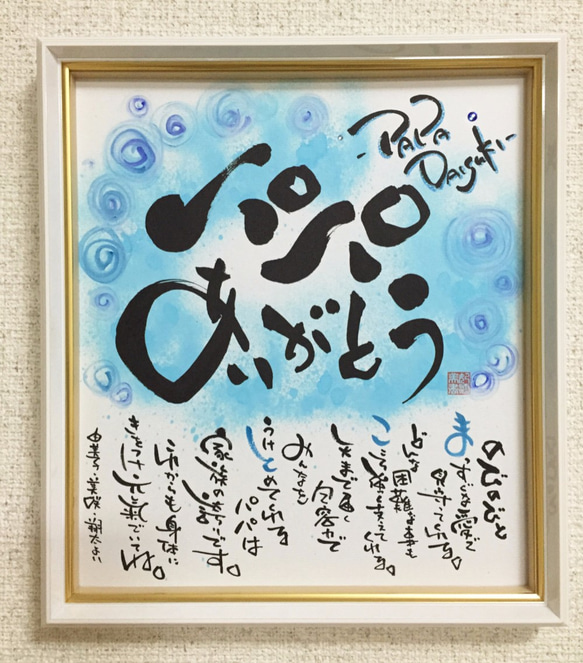 -PAPA
Daisuki-
パパ
ありがとう
のびのびと
まっすぐな愛で
見守ってくれる。
どんな困難な事も
こころ強く支えてくれる。
しんまで届く
包容力で
みんなを
うけとめてくれる
パパは
家族の です。
これからも身体に
きをつけて元気でいてね。
美咲・翔太より